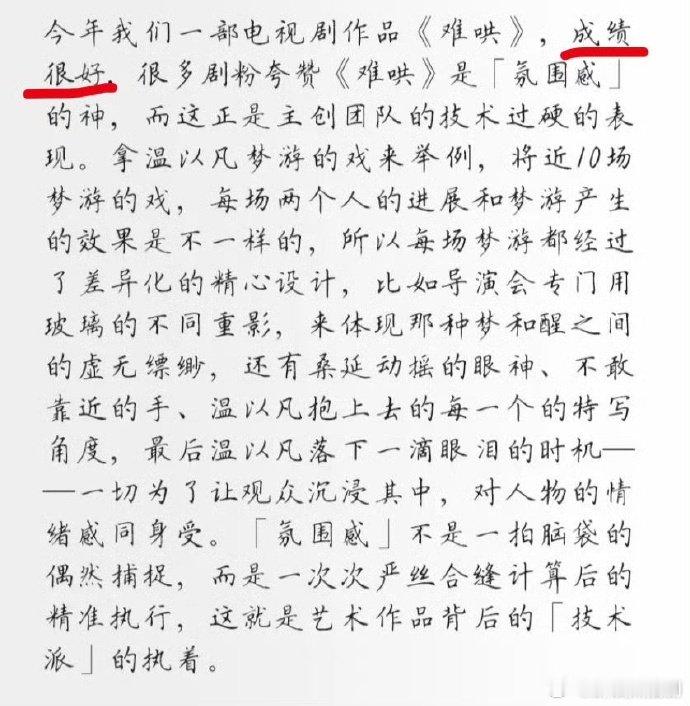 今年我们一部电视剧作品《难哄》，成绩
很好，很多剧粉夸赞《难哄》是「氛围感」
的神，而这正是主创团队的技术过硬的表
现。拿温以凡梦游的戏来举例，将近10场
梦游的戏，每场两个人的进展和梦游产生
的效果是不一样的，所以每场梦游都经过
了差异化的精心设计，比如导演会专门用
玻璃的不同重影，来体现那种梦和醒之间
的虚无缥缈，还有桑延动摇的眼神、不敢
靠近的手、温以凡抱上去的每一个的特写
角度，最后温以凡落下一滴眼泪的时机—
—一切为了让观众沉浸其中，对人物的情
绪感同身受。「氛围感」不是一拍脑袋的
偶然捕捉，而是一次次严丝合缝计算后的
精准执行，这就是艺术作品背后的「技术
派」的执着。